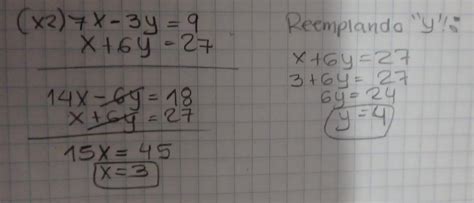 (x2) 7x-3y = 9
x+6y = 27
14x-6y = 18
x+6y = 27
15x = 45
x=3
Reemplando "y":
x+6y = 27
3+6y = 27
6y = 24
y=4